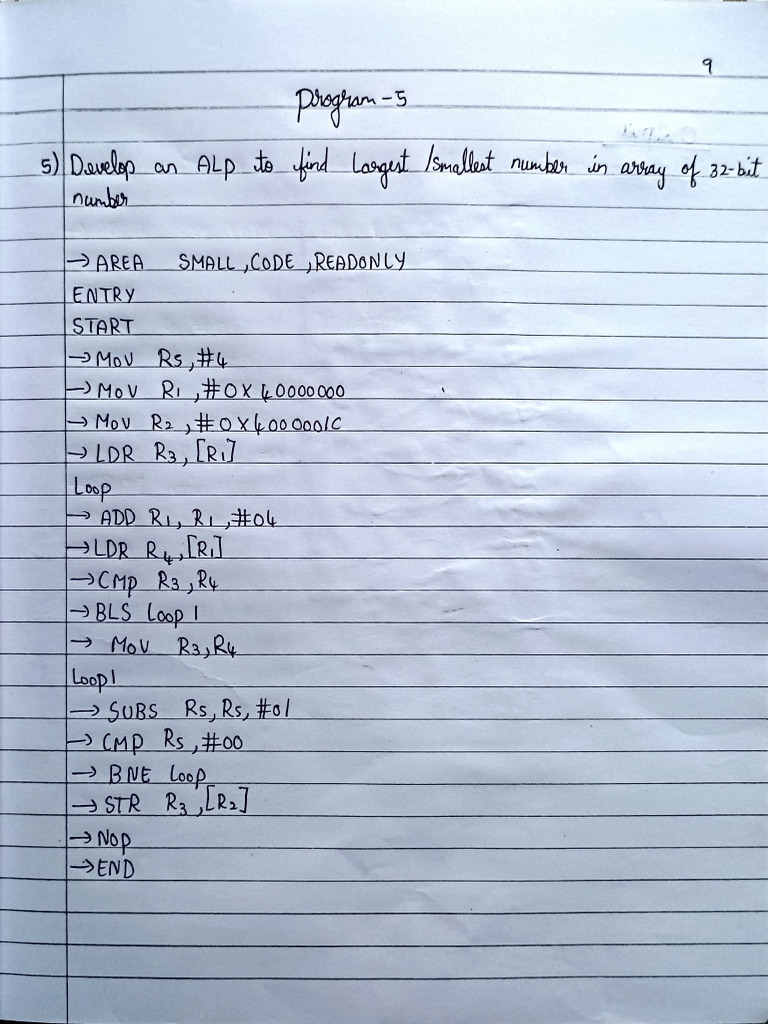 9
Program-5
5) Develop an ALP to find Largest /smallest number in array of 32-bit
number
→ AREA SMALL, CODE, READONLY
ENTRY
START
→ MOV R5, #4
→ MOV R1, #0X40000000
→ MOV R2, #0X4000001C
→ LDR R3, [R1]
Loop
→ ADD R1, R1, #04
→ LDR R4, [R1]
→ CMP R3, R4
→ BLS Loop1
→ MOV R3, R4
Loop1
→ SUBS R5, R5, #01
→ CMP R5, #00
→ BNE Loop
→ STR R3, [R2]
→ NOP
→ END